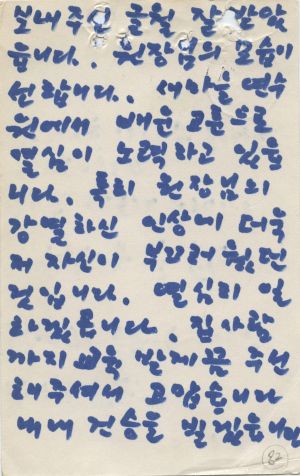 보내주신 글월 잘 받았
읍니다. 원장님의 모습이
선합니다. 새마을 연수
원에서 배운 교훈으로
열심히 노력하고 있읍
니다. 특히 원장님의
강렬하신 인상에 더욱
제 자신이 부끄러웠던
것입니다. 열심히 일
하겠읍니다. 집사람
까지 교육 받게끔 주선
해주셔서 고맙습니다
내내 건승을 빌겠읍니다
82